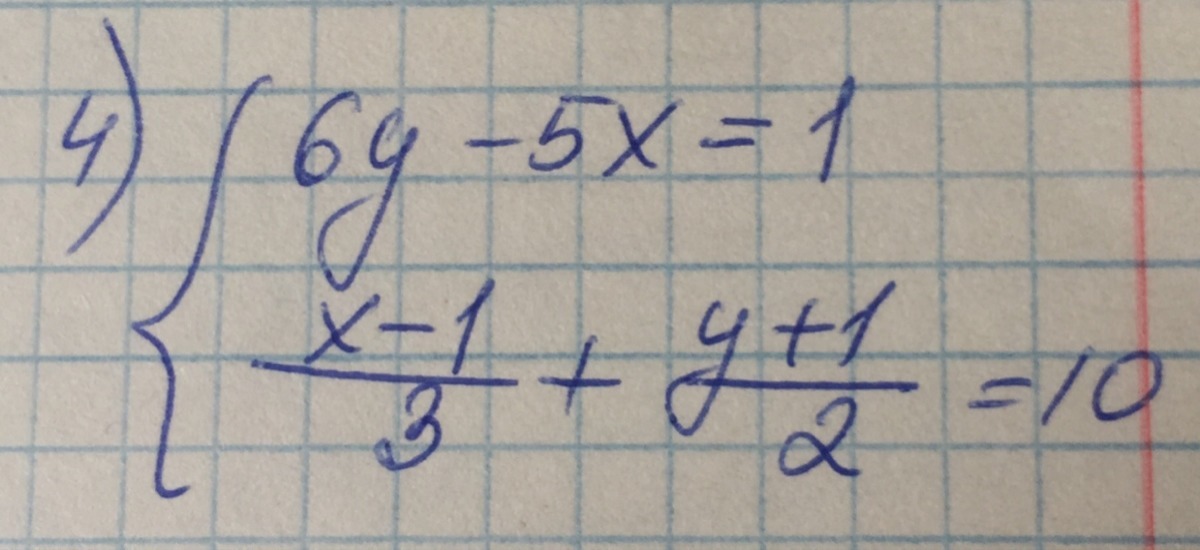 4) { 6y - 5x = 1
(x - 1)/3 + (y + 1)/2 = 10